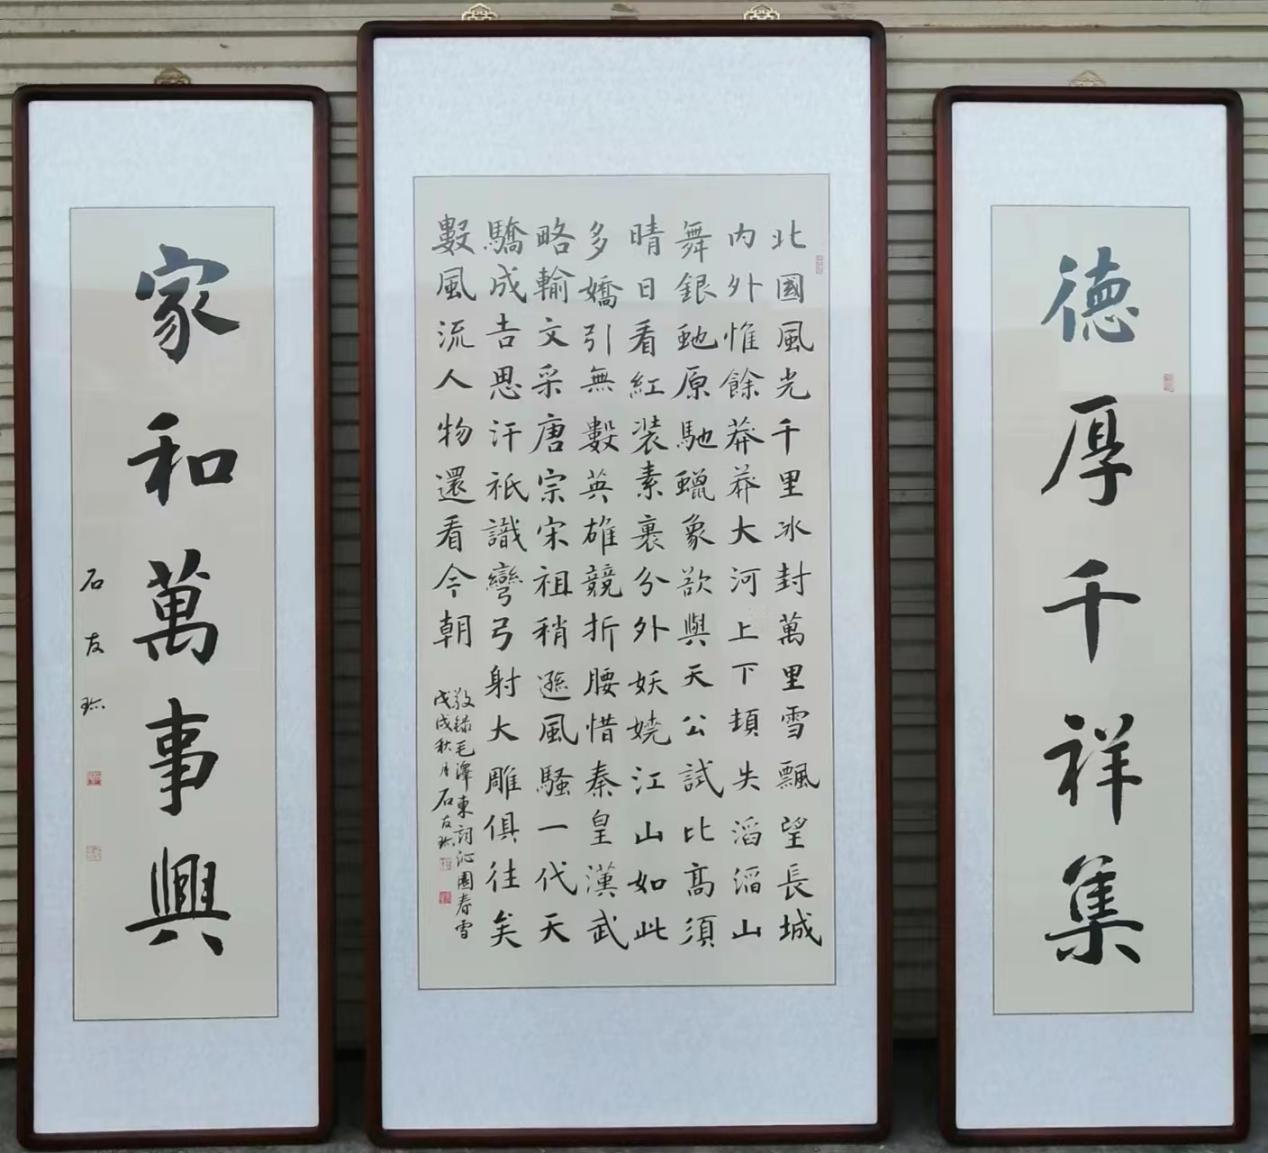 德厚千祥集
北國風光千里冰封萬里雪飄望長城
内外惟餘莽莽大河上下頓失滔滔山
舞銀虵原馳蠟象欲與天公試比髙須
晴日看紅装素裹分外妖嬈江山如此
多嬌引無數英雄競折腰惜秦皇漢武
略輸文采唐宗宋祖稍遜風騷一代天
驕成吉思汗祇識彎弓射大雕俱往矣
數風流人物還看今朝
敬録毛澤東詞沁園春雪
戊戌秋月石友珎
家和萬事興
石友珎